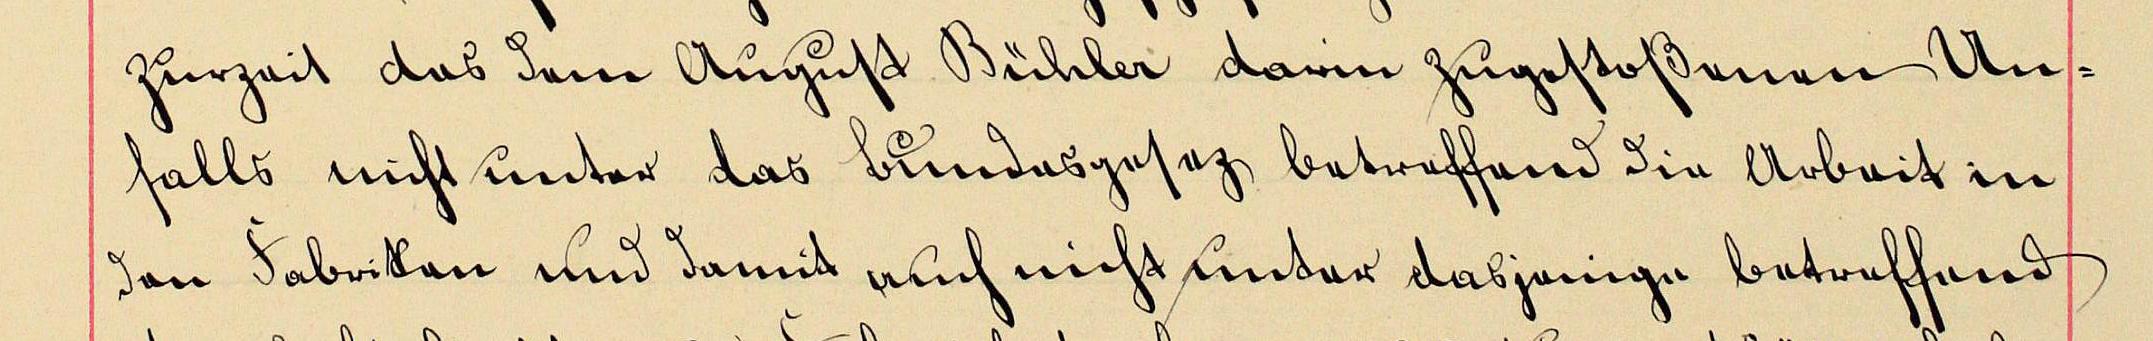 zurzeit des dem August Bühler darin zugestoßenen Un-
falls nicht unter das Bundesgesez betreffend die Arbeit in
den Fabriken und damit auch nicht unter dasjenige betreffend